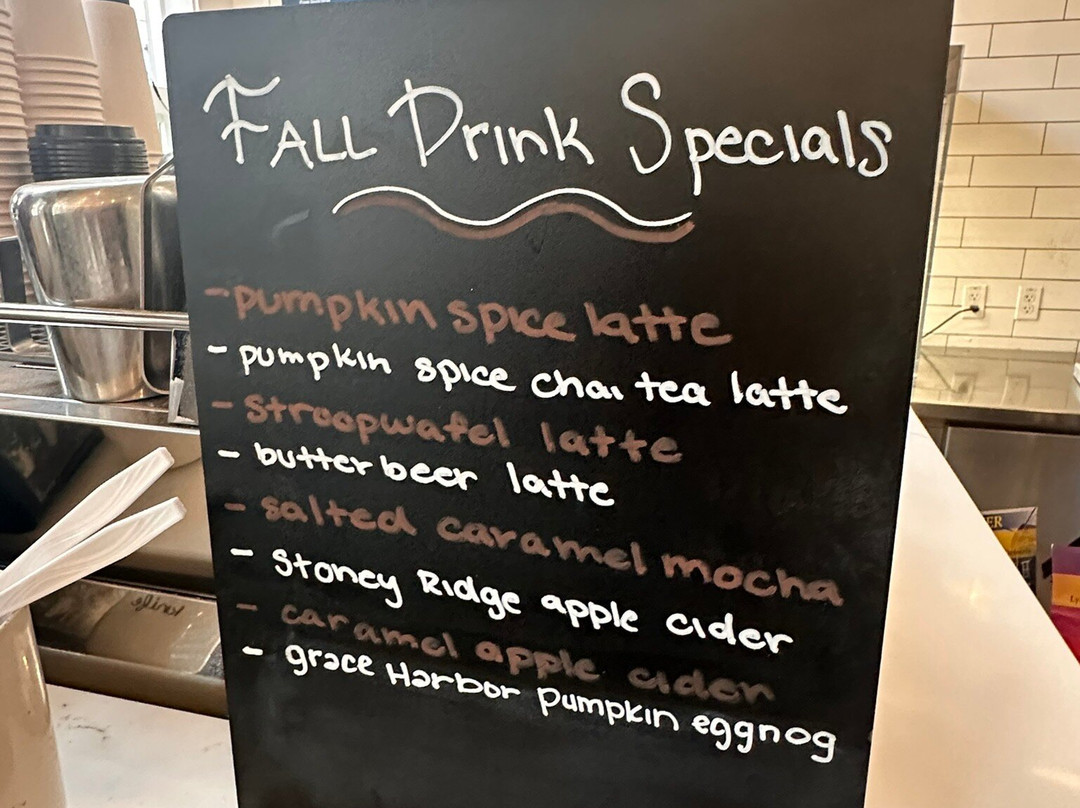 Fall Drink Specials
- pumpkin spice latte
- pumpkin spice chai tea latte
- stroopwafel latte
- butterbeer latte
- salted caramel mocha
- Stoney Ridge apple cider
- caramel apple cider
- grace Harbor pumpkin eggnog